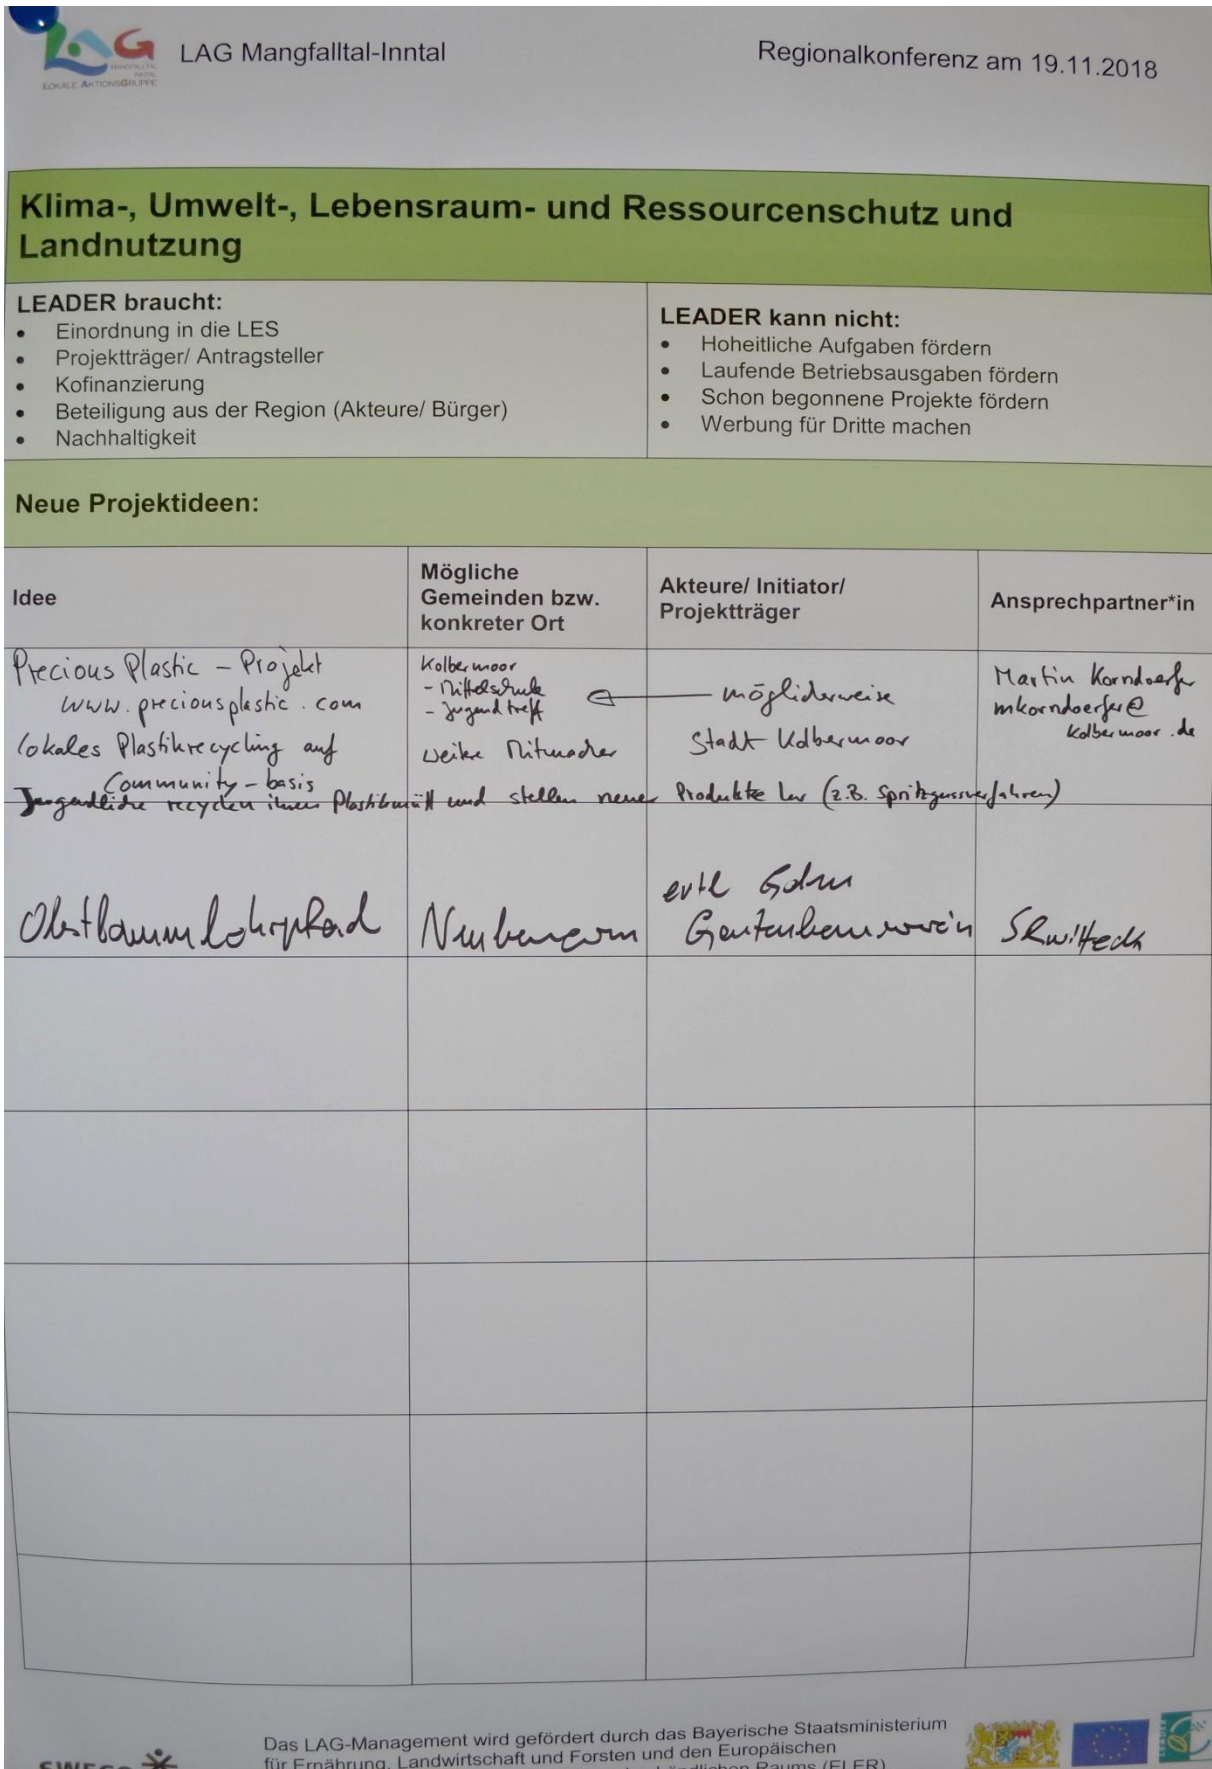 LAG
MANGFALLTAL
INNTAL
LOKALE AKTIONSGRUPPE
LAG Mangfalltal-Inntal
Regionalkonferenz am 19.11.2018
Klima-, Umwelt-, Lebensraum- und Ressourcenschutz und
Landnutzung
LEADER braucht:
• Einordnung in die LES
• Projektträger/ Antragsteller
• Kofinanzierung
• Beteiligung aus der Region (Akteure/ Bürger)
• Nachhaltigkeit
LEADER kann nicht:
• Hoheitliche Aufgaben fördern
• Laufende Betriebsausgaben fördern
• Schon begonnene Projekte fördern
• Werbung für Dritte machen
Neue Projektideen:
Idee
Mögliche
Gemeinden bzw.
konkreter Ort
Akteure/ Initiator/
Projektträger
Ansprechpartner*in
Precious Plastic - Projekt
www.preciousplastic.com
lokales Plastikrecycling auf
Community-basis
Kolbermoor
- Mittelschule
- Jugendtreff
weitere Mitmacher
möglicherweise
Stadt Kolbermoor
Martin Korndoerfer
mkorndoerfer@
kolbermoor.de
Jugendliche recyclen ihren Plastikmüll und stellen neue Produkte her (z.B. Spritzgussverfahren)
Obstbaumlehrpfad
evtl
Gartenbauverein
Das LAG-Management wird gefördert durch das Bayerische Staatsministerium
für Ernährung, Landwirtschaft und Forsten und den Europäischen
Raums (ELER)
LEADER